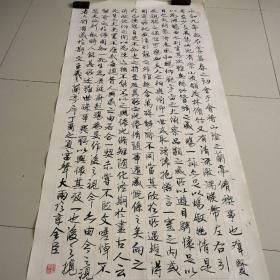 永和九年歲在癸丑暮春之初會于會稽山陰之蘭亭脩禊事也群賢
畢至少長咸集此地有崇山峻領茂林脩竹又有清流激湍暎帶左右引
以為流觴曲水列坐其次雖無絲竹管弦之盛一觴一詠亦足以暢叙幽情是
日也天朗氣清惠風和暢仰觀宇宙之大俯察品類之盛所以遊目騁懷足以
極視聽之娛信可樂也夫人之相與俯仰一世或取諸懷抱悟言一室之內或
因寄所託放浪形骸之外雖趣舍萬殊靜躁不同當其欣於所遇暫得
於己快然自足不知老之將至及其所之既惓情隨事遷感慨係之矣向之
所欣俛仰之間已為陳迹猶不能不以之興懷況脩短隨化終期於盡古人云
死生亦大矣豈不痛哉每覽昔人興感之由若合一契未嘗不臨文嗟悼不
能喻之於懷固知一死生為虛誕齊彭殤為妄作後之視今亦由今之視
昔悲夫故列叙時人錄其所述雖世殊事異所以興懷其致一也後之攬
者亦將有感於斯文王羲之蘭亭序丁酉之夏大雨於京金臣